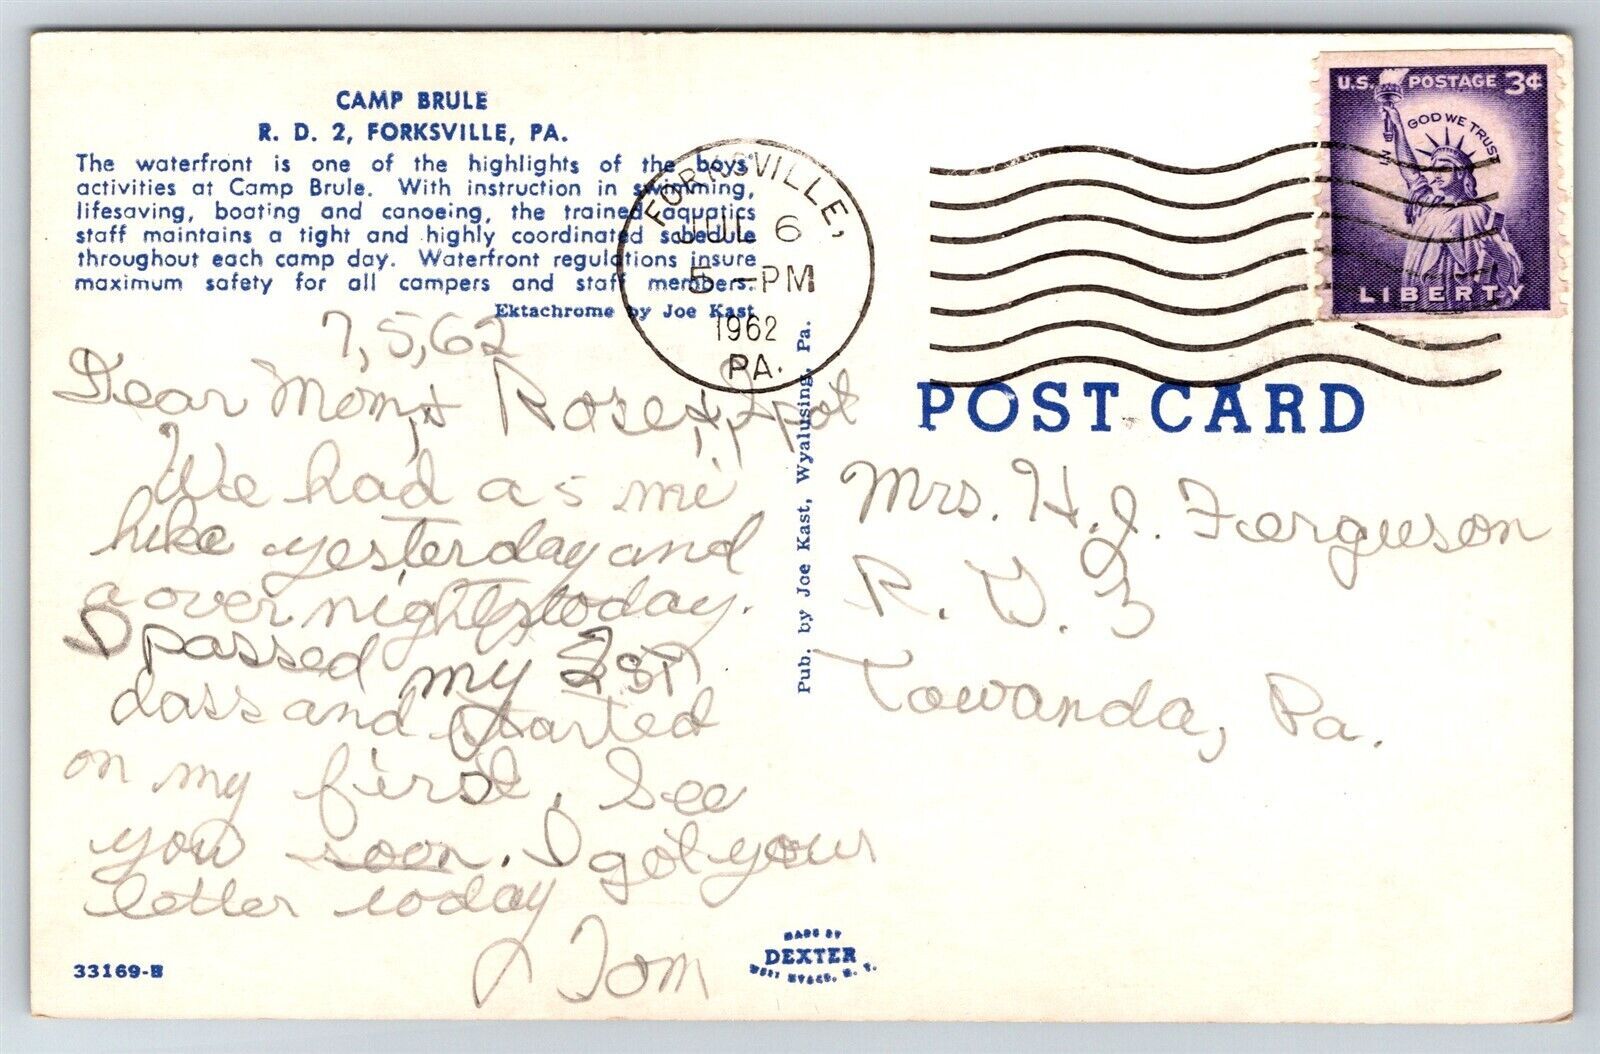 CAMP BRULE
R. D. 2, FORKSVILLE, PA.
The waterfront is one of the highlights of the boys'
activities at Camp Brule. With instruction in swimming,
lifesaving, boating and canoeing, the trained aquatics
staff maintains a tight and highly coordinated schedule
throughout each camp day. Waterfront regulations insure
maximum safety for all campers and staff members.
Ektachrome by Joe Kast
7,5,62
Dear Mom, + Rose, + Spot
We had a 5 mi
hike yesterday and
a over night today.
I passed my
class and started
on my first. See
you soon. I got your
letter today
Tom
33169-B
MADE BY
DEXTER
WEST NYACK, N. Y.
Pub. by Joe Kast, Wyalusing, Pa.
FORKSVILLE,
JUL 6
5 - PM
1962
PA.
U.S. POSTAGE 3¢
IN GOD WE TRUST
LIBERTY
POST CARD
Mrs. H. J. Ferguson
R. D. 3
Towanda, Pa.